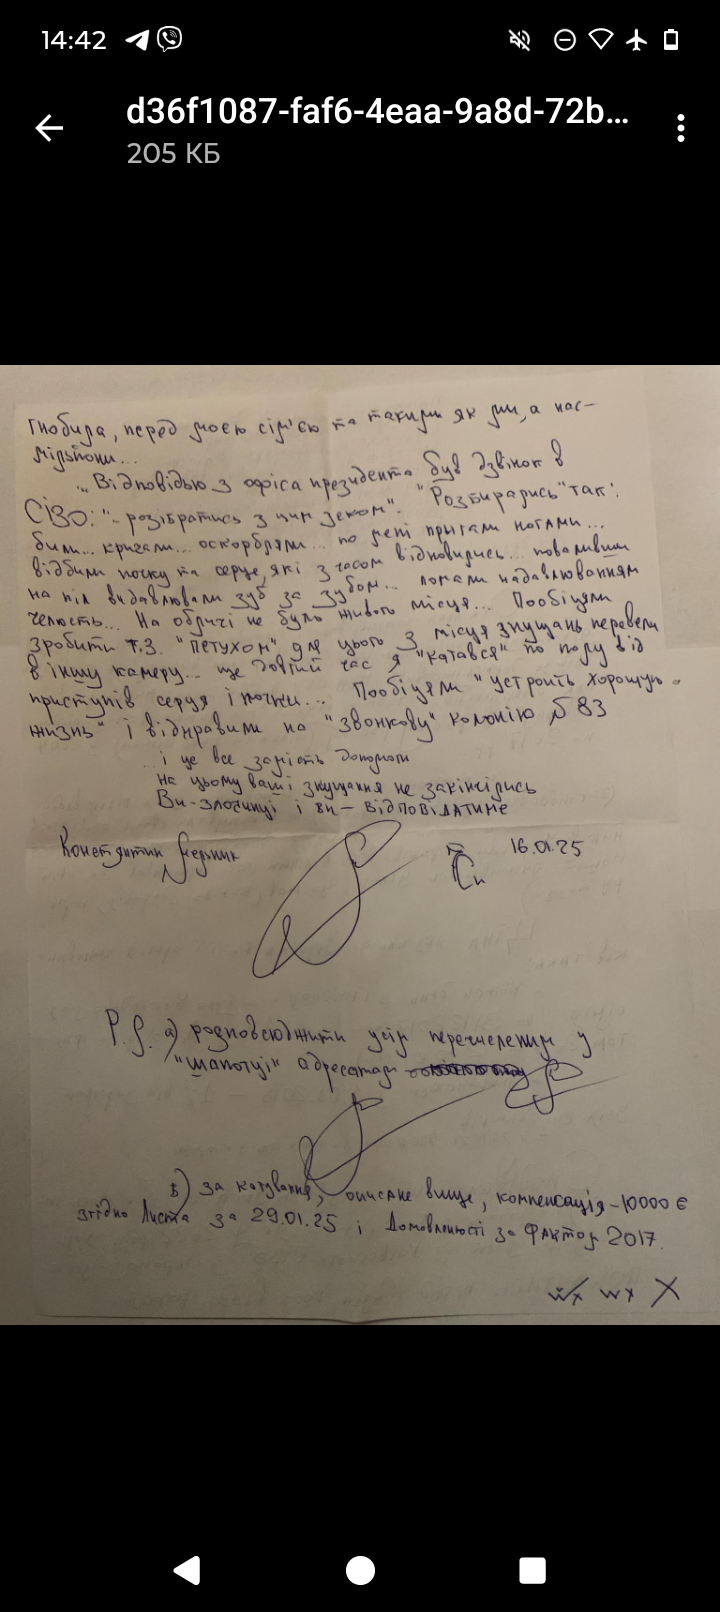 14:42
d36f1087-faf6-4eaa-9a8d-72b...
205 КБ
гнобила, перед моєю сім'єю та такими як ми, а нас-
мільйони...
... Відповідью з офіса президента був дзвінок в
СІЗО: "- розібратись з цим зеком". "Розбирались" так:
били... кричали... оскорбляли... по мені прыгали ногами...
відбили почку та серце, які з часом відновились... поваливши
на піл видавлювали зуб за зубом... ломали надавлюванням
челюсть... На обличі не було живого місця... Пообіцяли
зробити т.з. "петухом" для цього з місця знущань перевели
в іншу камеру... ще довгий час я "катався" по полу від
приступів серця і почки... Пообіцяли "устроить хорошую
жизнь" і відправили на "звонкову" колонію №83
... і це все замість допомоги
на цьому ваші знущання не закінчились
Ви-злочинці і ви - ВІДПОВІДАТИМЕ
Константин 16.01.25
P.S. а) розповсюджити усім перечисленим у
"шапочці" адресатам
б) за катування, описане вище, компенсація - 10000 €
згідно Листа за 29.01.25 і Домовленості за Фактом 2017.